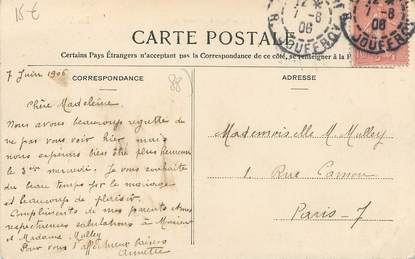 15€
12 *
7-6
06
R. JOUFFROY
CARTE POSTALE
Certains Pays Étrangers n'acceptent pas la Correspondance de ce côté, se renseigner à la P
CORRESPONDANCE
ADRESSE
7 Juin 1906
88
Chère Madeleine
Nous avons beaucoup regretté de
ne pas vous voir hier, mais
nous espérons bien être plus heureux
le 3me mercredi. Je vous souhaite
du beau temps pour le mariage
et beaucoup de plaisir.
Compliments de mes parents
respectueuses salutations à Monsieur
et Madame Mulley
Pour vous baisers
Annette
Mademoiselle M. Mulley
1 Rue Camou
Paris-7